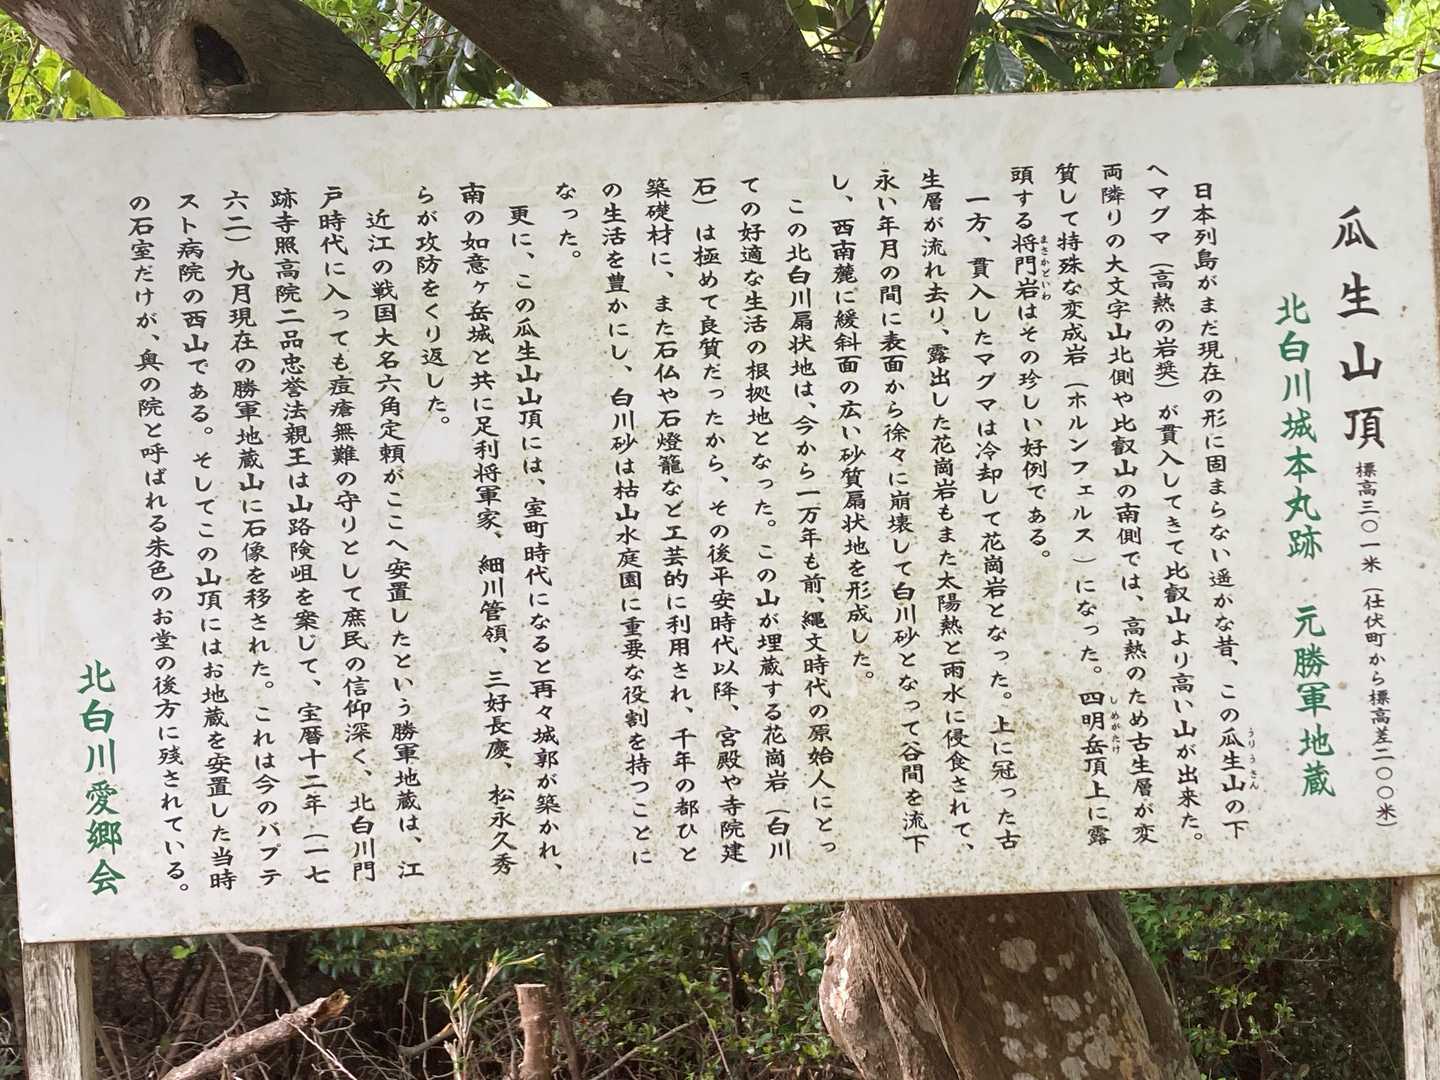 瓜生山頂 標高三〇一米(仕伏町から標高差二〇〇米)
北白川城本丸跡 元勝軍地蔵
日本列島がまだ現在の形に固まらない遥かな昔、この瓜生山の下
うりうさん
へマグマ(高熱の岩奨)が貫入してきて比叡山より高い山が出来た。
両隣りの大文字山北側や比叡山の南側では、高熱のため古生層が変
質して特殊な変成岩(ホルンフェルス)になった。四明岳頂上に露
しめがたけ
頭する将門岩はその珍しい好例である。
まさかどいわ
一方、貫入したマグマは冷却して花崗岩となった。上に冠った古
生層が流れ去り、露出した花崗岩もまた太陽熱と雨水に侵食されて、
永い年月の間に表面から徐々に崩壊して白川砂となって谷間を流下
し、西南麓に緩斜面の広い砂質扇状地を形成した。
この北白川扇状地は、今から一万年も前、縄文時代の原始人にとっ
ての好適な生活の根拠地となった。この山が埋蔵する花崗岩(白川
石)は極めて良質だったから、その後平安時代以降、宮殿や寺院建
築礎材に、また石仏や石燈籠など工芸的に利用され、千年の都ひと
の生活を豊かにし、白川砂は枯山水庭園に重要な役割を持つことに
なった。
更に、この瓜生山山頂には、室町時代になると再々城郭が築かれ、
南の如意ヶ岳城と共に足利将軍家、細川管領、三好長慶、松永久秀
らが攻防をくり返した。
近江の戦国大名六角定頼がここへ安置したという勝軍地蔵は、江
戸時代に入っても痘瘡無難の守りとして庶民の信仰深く、北白川門
跡寺照高院二品忠誉法親王は山路険岨を案じて、宝暦十二年(一七
六二)九月現在の勝軍地蔵山に石像を移された。これは今のバプテ
スト病院の西山である。そしてこの山頂にはお地蔵を安置した当時
の石室だけが、奥の院と呼ばれる朱色のお堂の後方に残されている。
北白川愛郷会